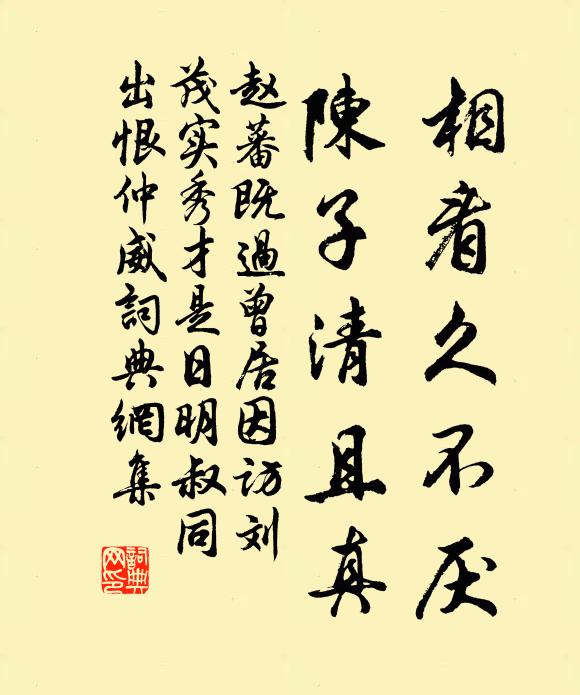 相看久不厌
陳子清且真
赵蕃既過曾居因访刘
茂实秀才是日明叔同
出恨仲威詞典網集
詞典
网印